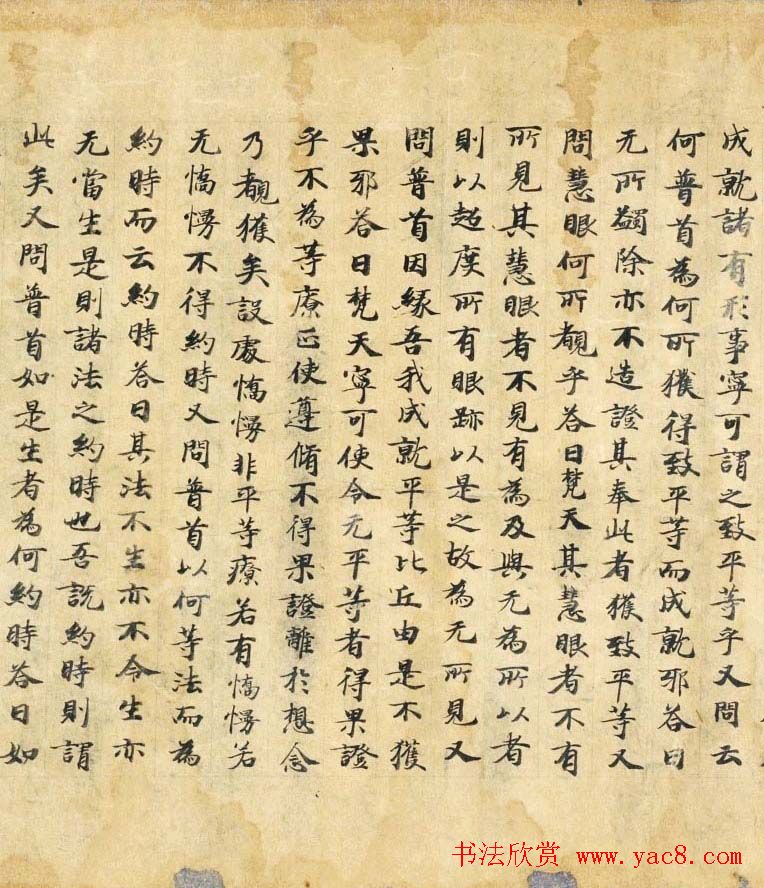 成就諸有形事寧可謂之致平等乎又問云
何普首為何所獲得致平等而成就邪荅曰
无所蠲除亦不造證其奉此者獲致平等又
問慧眼何所覩乎荅曰梵天其慧眼者不有
所見其慧眼者不見有為及與无為所以者
則以超度所有眼跡以是之故為无所見又
問普首因緣吾我成就平等比丘由是不獲
果邪荅曰梵天寧可使令无平等者得果證
乎不為等療正使遵脩不得果證離於想念
乃覩獲矣設處憍慢非平等療若有憍慢若
无憍慢不得約時又問普首以何等法而為
約時而云約時荅曰其法不生亦不令生亦
无當生是則諸法之約時也吾說約時則謂
此矣又問普首如是生者為何約時荅曰如
书法欣赏 www.yac8.com